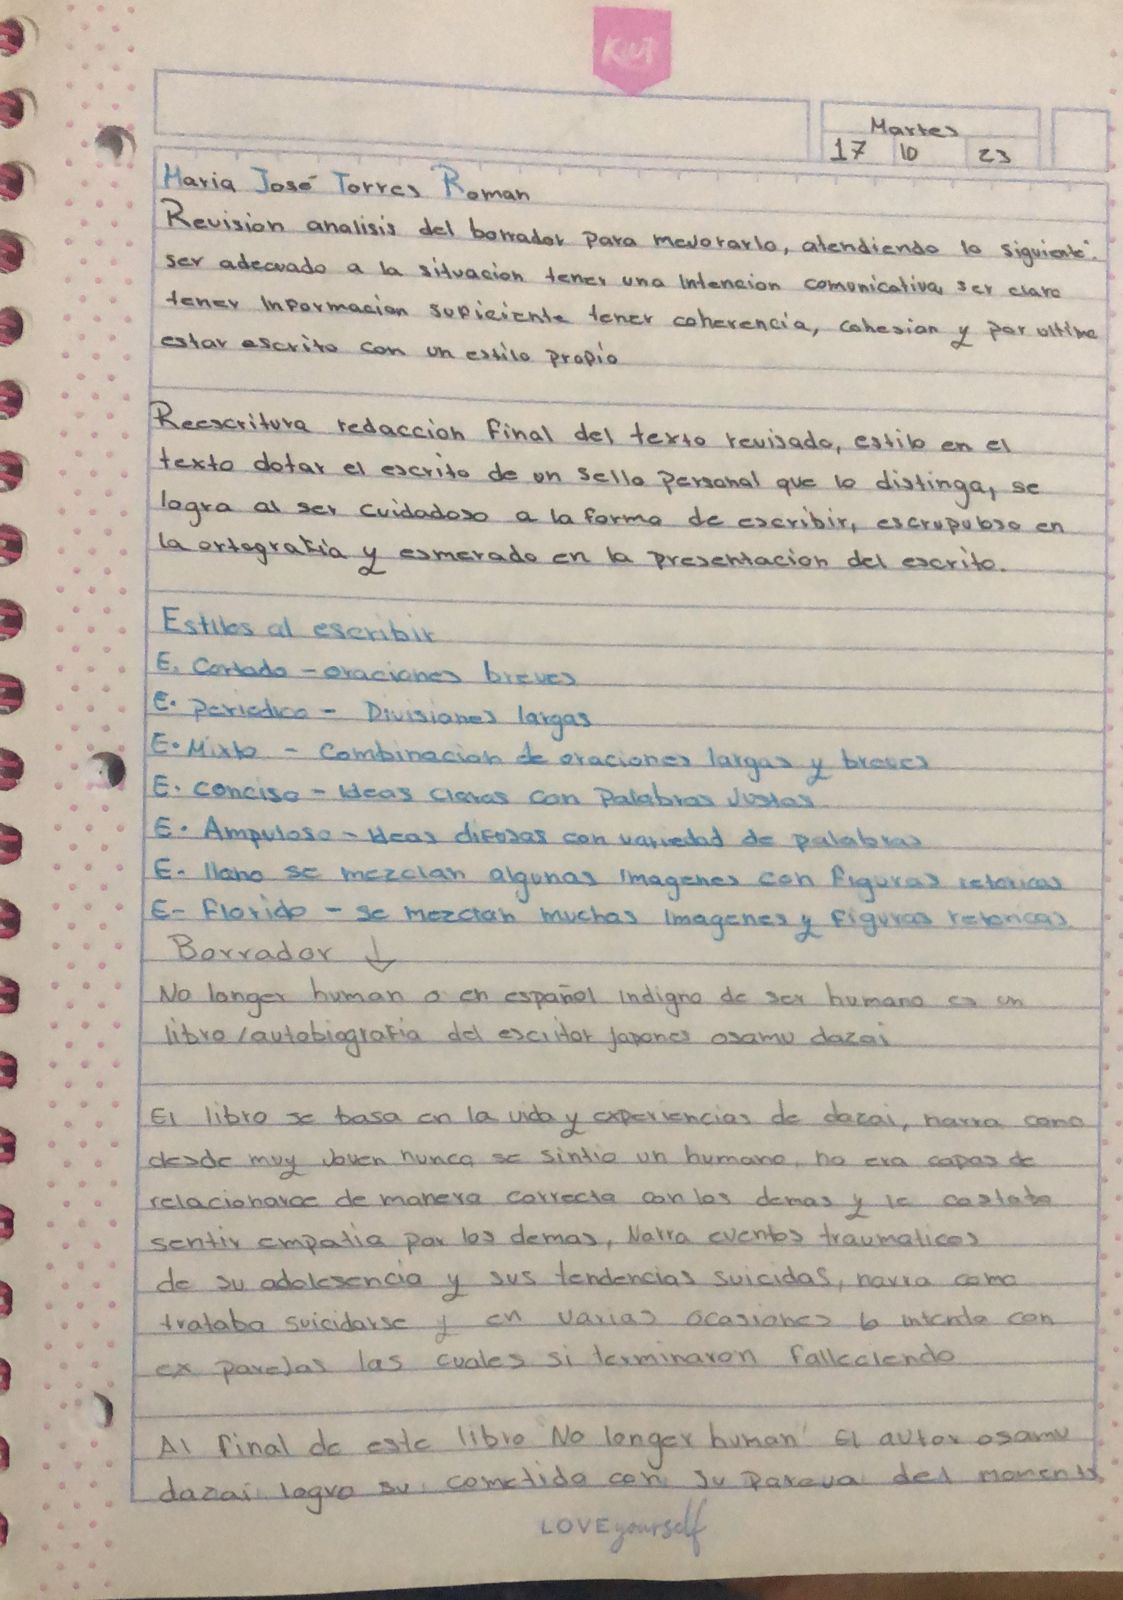 KIUT
Martes
17 10 23
Maria José Torres Roman
Revision analisis del borrador para mejorarlo, atendiendo lo siguiente:
ser adecuado a la situacion tener una intencion comunicativa, ser claro
tener informacion suficiente tener coherencia, cohesion y por ultimo
estar escrito con un estilo propio
Reescritura redaccion final del texto revisado, estilo en el
texto dotar el escrito de un sello personal que lo distinga, se
logra al ser cuidadoso a la forma de escribir, escrupuloso en
la ortografia y esmerado en la presentacion del escrito.
Estilos al escribir
E. Cortado - oraciones breves
E. periodico - Divisiones largas
E. Mixto - Combinacion de oraciones largas y breves
E. conciso - Ideas claras con palabras justas
E. Ampuloso - Ideas difusas con variedad de palabras
E- llano se mezclan algunas imagenes con figuras retoricas
E- Florido - se mezclan muchas imagenes y figuras retoricas
Borrador ↓
No longer human o en español indigno de ser humano es un
libro/autobiografia del escritor japones osamu dazai
El libro se basa en la vida y experiencias de dazai, narra como
desde muy joven nunca se sintio un humano, no era capas de
relacionarce de manera correcta con los demas y le costaba
sentir empatia por los demas, Narra eventos traumaticos
de su adolesencia y sus tendencias suicidas, narra como
trataba suicidarse y en varias ocasiones lo intento con
ex parejas las cuales si terminaron falleciendo
Al final de este libro "No longer human" El autor osamu
dazai logro su cometido con su pareja del momento
LOVE yourself